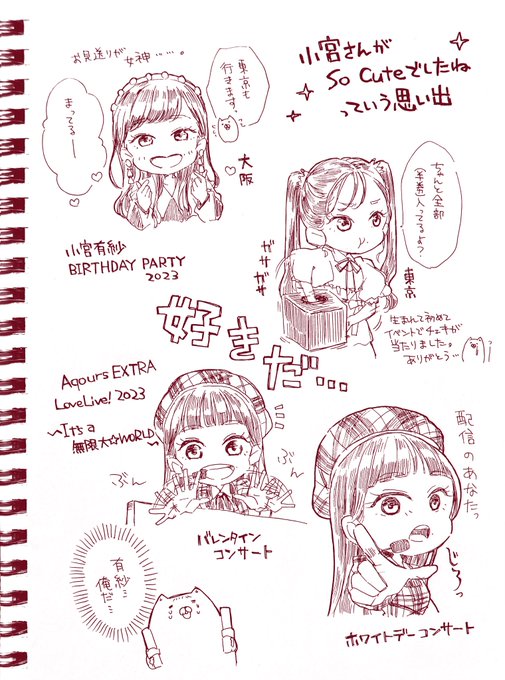 小宮さんが
So Cuteでしたね
っていう思い出
お見送りが女神……。
東京も
行きます。
まってるーー
大阪
小宮有紗
BIRTHDAY PARTY
2023
ちゃんと全部
入ってるよ?
ガサガサ
東京
生まれて初めて
イベントでチェキが
当たりました。
ありがとう…
好きだ…
Aqours EXTRA
LoveLive! 2023
~It's a
無限大☆WORLD~
ぶん
ぶん
バレンタイン
コンサート
配信のあなたっ
じろっ
ホワイトデーコンサート
有紗…
俺だ…